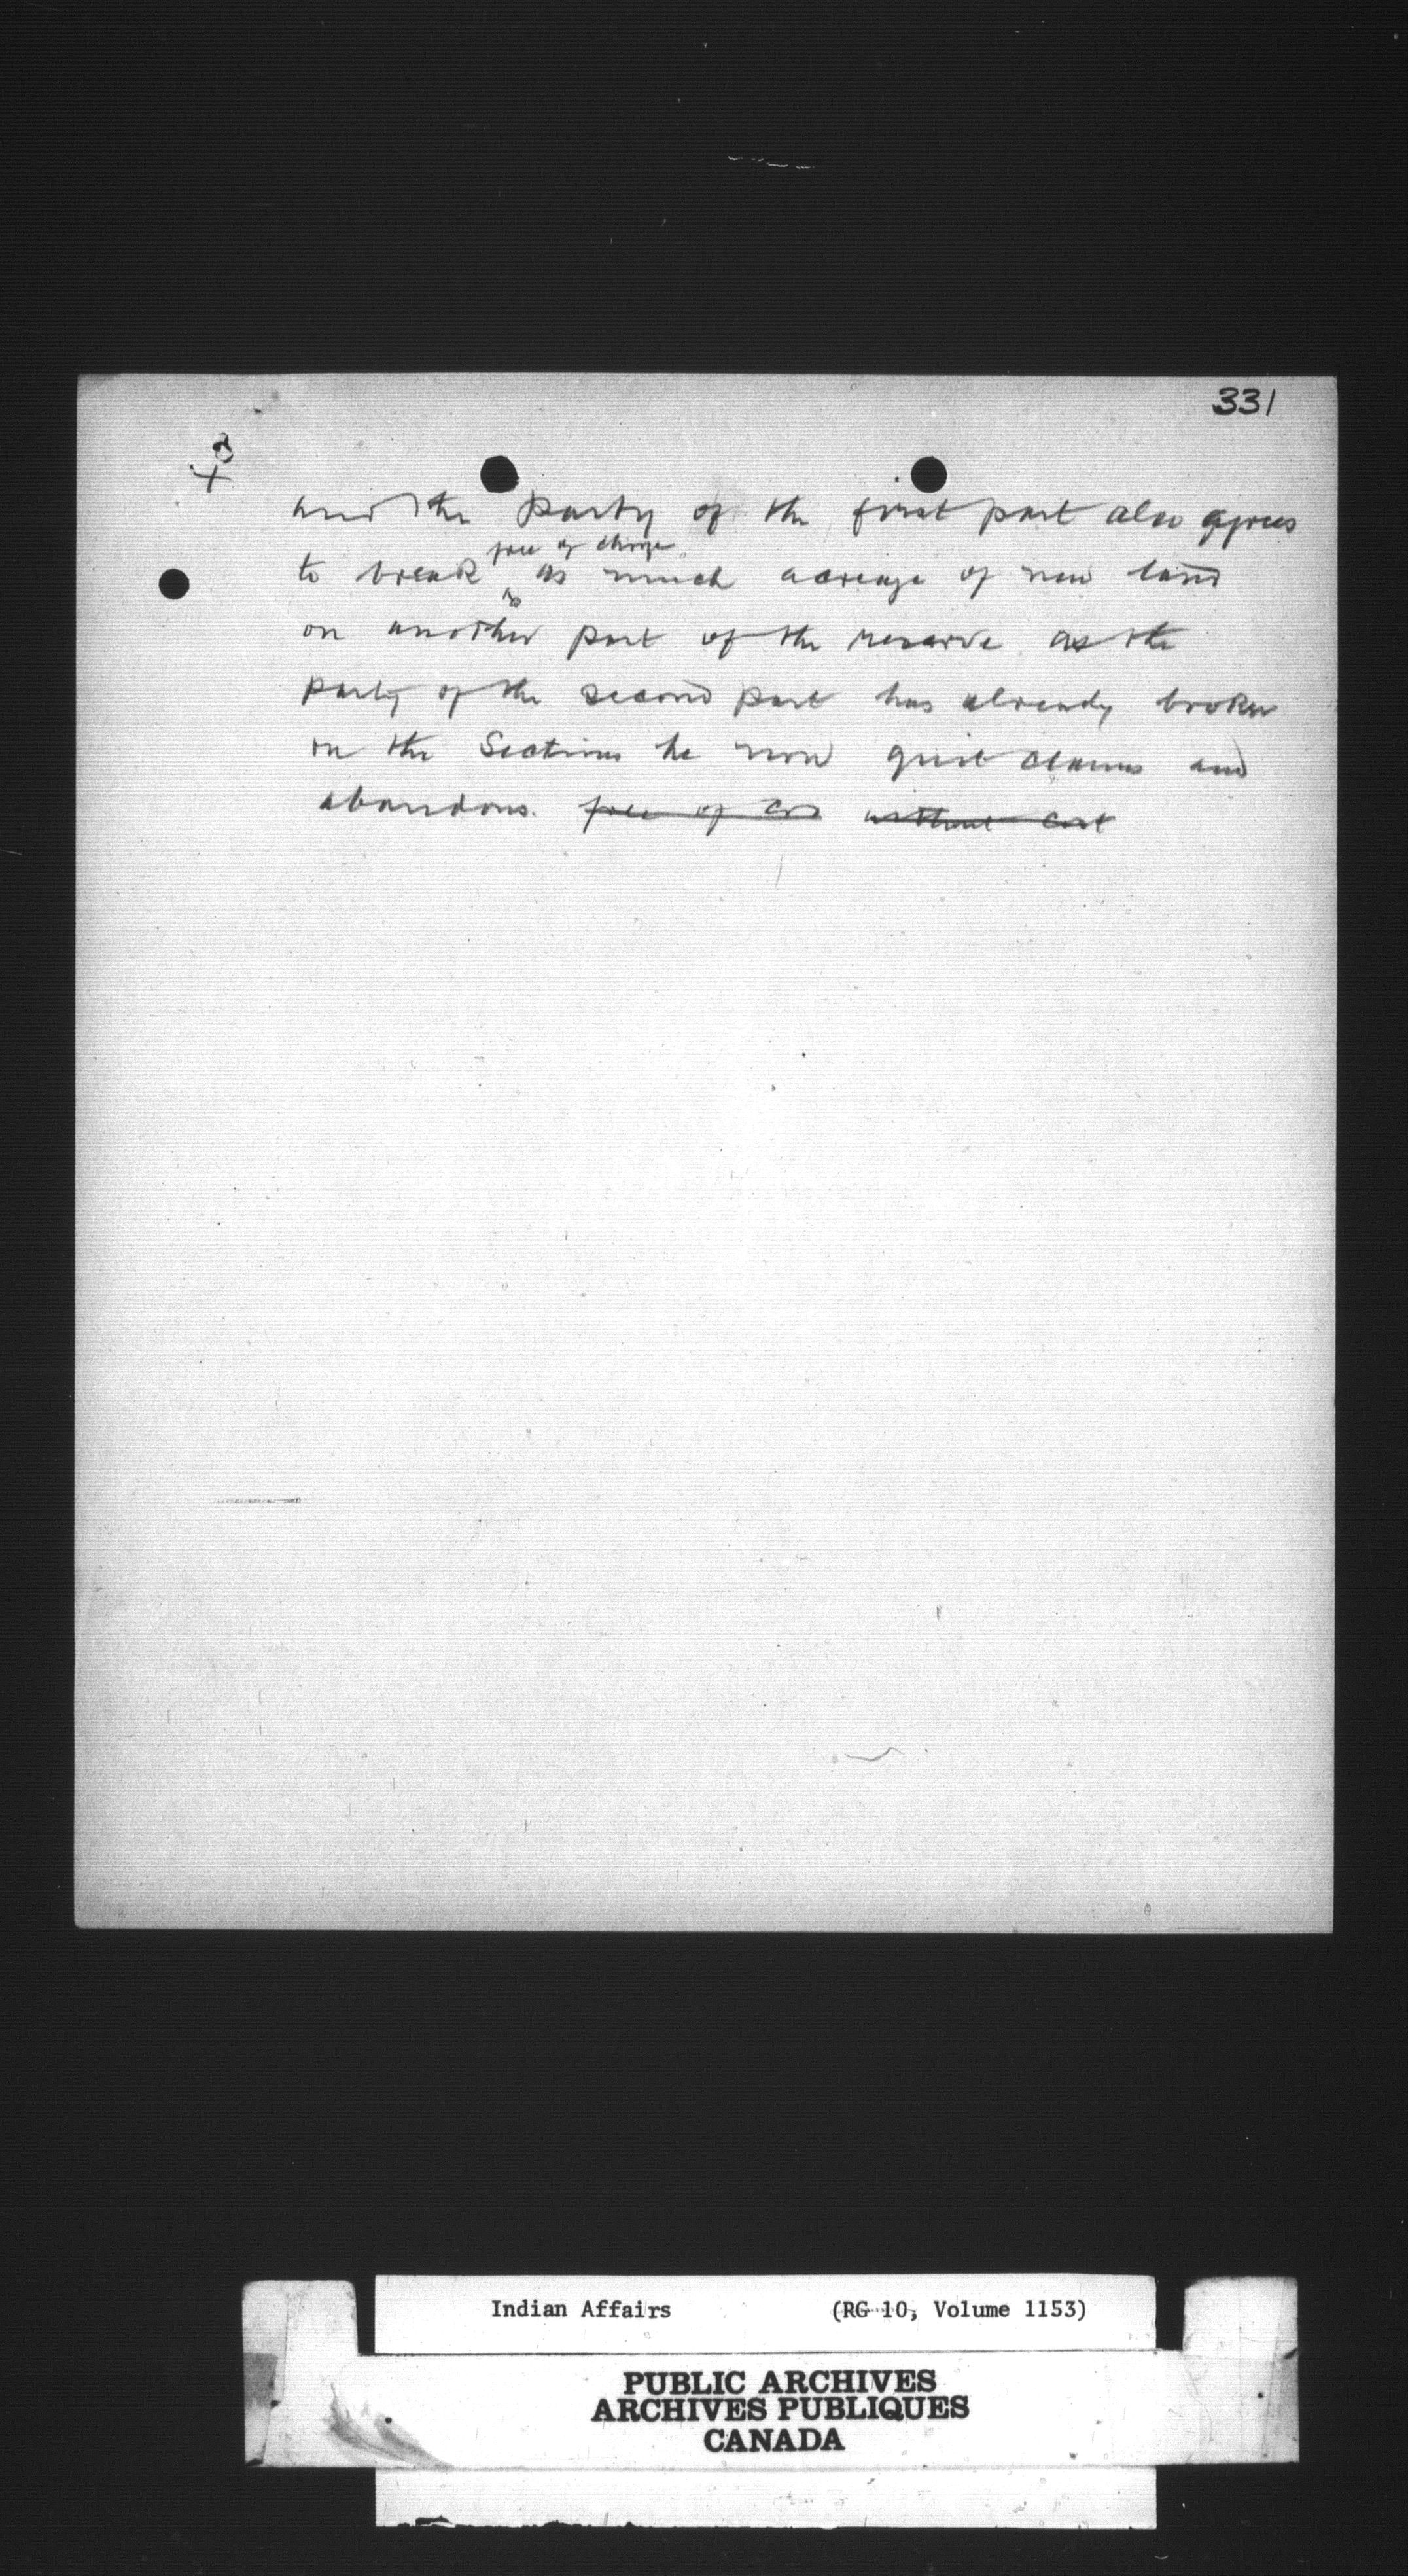 331
and the party of the first part also agrees
free of charge
to break as much acreage of new land
on another part of the reserve as the
party of the second part has already broken
on the Sections he now quit claims and
abandons. free of co without cost
Indian Affairs (RG 10, Volume 1153)
PUBLIC ARCHIVES
ARCHIVES PUBLIQUES
CANADA